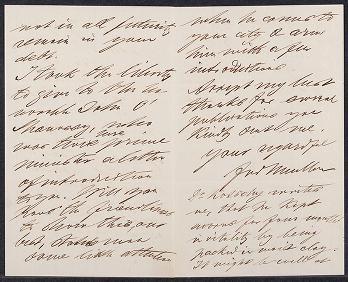 not in all futurity
remain in your
debt.
I took the liberty
to give to the
worth John O'
Shanassy, who
was thrice prime
minister a letter
of introduction
to you. Will you
have the friendliness
to show this, our
best, statesman
some little attention
when he comes to
your city & arm
him with a few
introductions.
Accept my best
thanks for several
publications you
kindly sent me.
Your regardful
Ferd. Mueller
Dr writes
me, that he kept
for four months
in vitality by being
packed in moist clay.
It might be well at